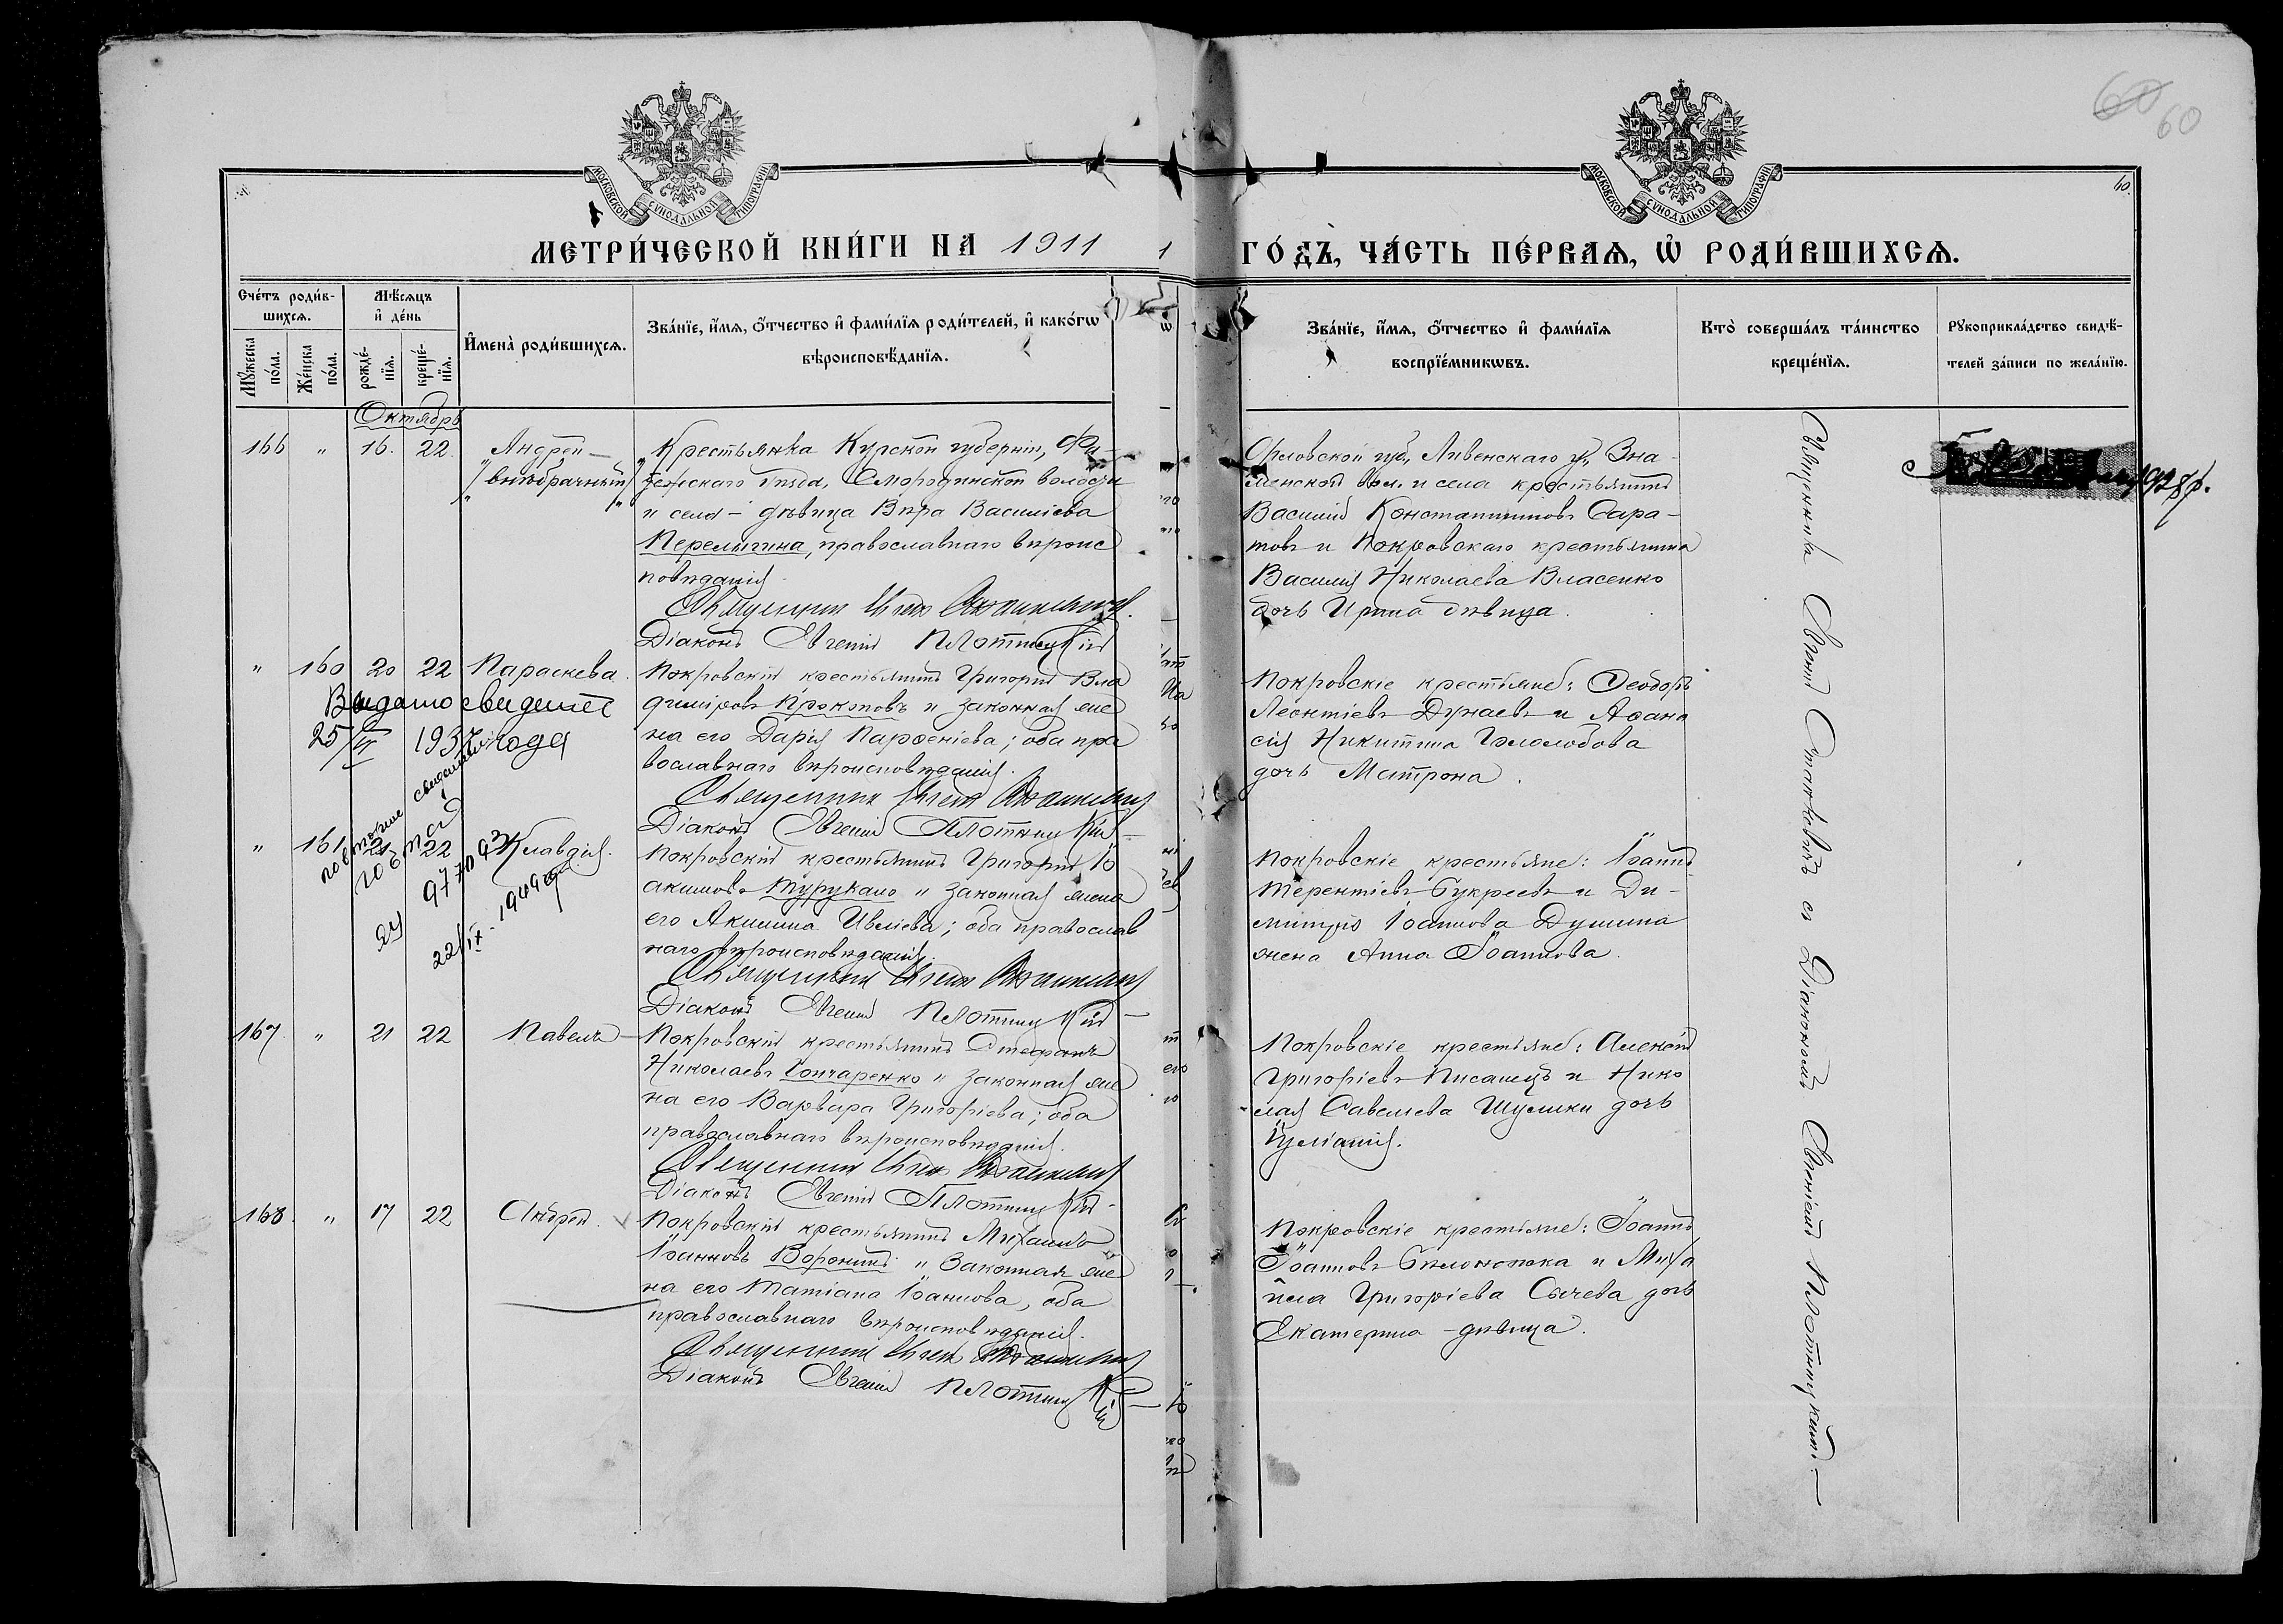 60
60
МОСКОВСКОЙ СУНОДАЛЬНОЙ ТИПОГРАФІИ
МОСКОВСКОЙ СУНОДАЛЬНОЙ ТИПОГРАФІИ
60.
МЕТРИ́ЧЕСКОЙ КНИ́ГИ НА 1911
ГО́ДЪ, ЧА́СТЬ ПЕ́РВАѦ, Ѡ҆ РОДИ́ВШИХСѦ.
Сче́тъ роди́в-
шихсѧ.
Мѣ́сѧцъ
и҆ де́нь
Мꙋ́жеска по́ла.
Же́нска по́ла.
рожде́-
нїѧ.
креще́-
нїѧ.
И҆мена̀ роди́вшихсѧ.
Зва́нїе, и҆́мѧ, ѻ҆́тчество и҆ фами́лїѧ роди́телей, и҆ како́гѡ
вѣроисповѣ́данїѧ.
Зва́нїе, и҆́мѧ, ѻ҆́тчество и҆ фами́лїѧ
воспрїе́мникѡвъ.
Кто̀ соверша́лъ та́инство
креще́нїѧ.
Рꙋкоприкла́дство свидѣ́-
телей за́писи по жела́нїю.
Октябрь
166 " 16. 22. Андрей —
внѣбрачный
Крестьянка Курской губерніи, Фа-
тежскаго уѣзда, Смородинской волости
и села – дѣвица Вѣра Василіева
Перелыгина, православнаго вѣроис
повѣданія.
Священник
Діаконъ Евгеній Плотницкій
Орловской губ., Ливенскаго у., Зна-
менской вол. и села крестьянинъ
Василій Константиновъ Сара-
товъ и Покровскаго крестьянина
Василія Николаева Власенко
дочь Ирина дѣвица.
928 г.
" 160 20 22 Параскева.
Выдано свидетел
25/VI 1937 года
Покровскій крестьянинъ Григорій Вла
диміровъ Прокоповъ и законная же
на его Дарія Парѳеніева; оба пра
вославнаго вѣроисповѣданія.
Священник
Діаконъ Евгеній Плотницкій
Покровскіе крестьяне: Ѳеодоръ
Леонтіевъ Дунаевъ и Аѳана
сія Никитина Гололобова
дочь Матрона.
" 161 21 22 Клавдія.
свидетельство
22/IX-1949 г.
Покровскій крестьянинъ Григорій Іо
акимовъ Турукало и законная жена
его Акилина Ивліева; оба православ
наго вѣроисповѣданія.
Священник
Діаконъ Евгеній Плотницкій
Покровскіе крестьяне: Іоаннъ
Терентіевъ Букреевъ и Ди-
митрія Іоаннова Душина
жена Анна Іоаннова.
167. " 21 22 Павелъ —
Покровскій крестьянинъ Стефанъ
Николаевъ Гончаренко и законная же
на его Варвара Григоріева; оба
православнаго вѣроисповѣданія.
Священник
Діаконъ Евгеній Плотницкій
Покровскіе крестьяне: Алексій
Григоріевъ Писанецъ и Нико
лая Савелиева Шулики дочь
Іуліанія.
168. " 17 22 Андрей.
Покровскій крестьянинъ Михаилъ
Іоанновъ Воронинъ и Законная же
на его Татіана Іоаннова, оба
православнаго вѣроисповѣданія.
Священник
Діаконъ Евгеній Плотницкій
Покровскіе крестьяне: Іоаннъ
Іоанновъ Бѣлоножка и Миха
ила Григоріева Сычева дочь
Екатерина – дѣвица.
Священникъ Евгеній Станкевичъ съ Діакономъ Евгеніемъ Плотницкимъ. —